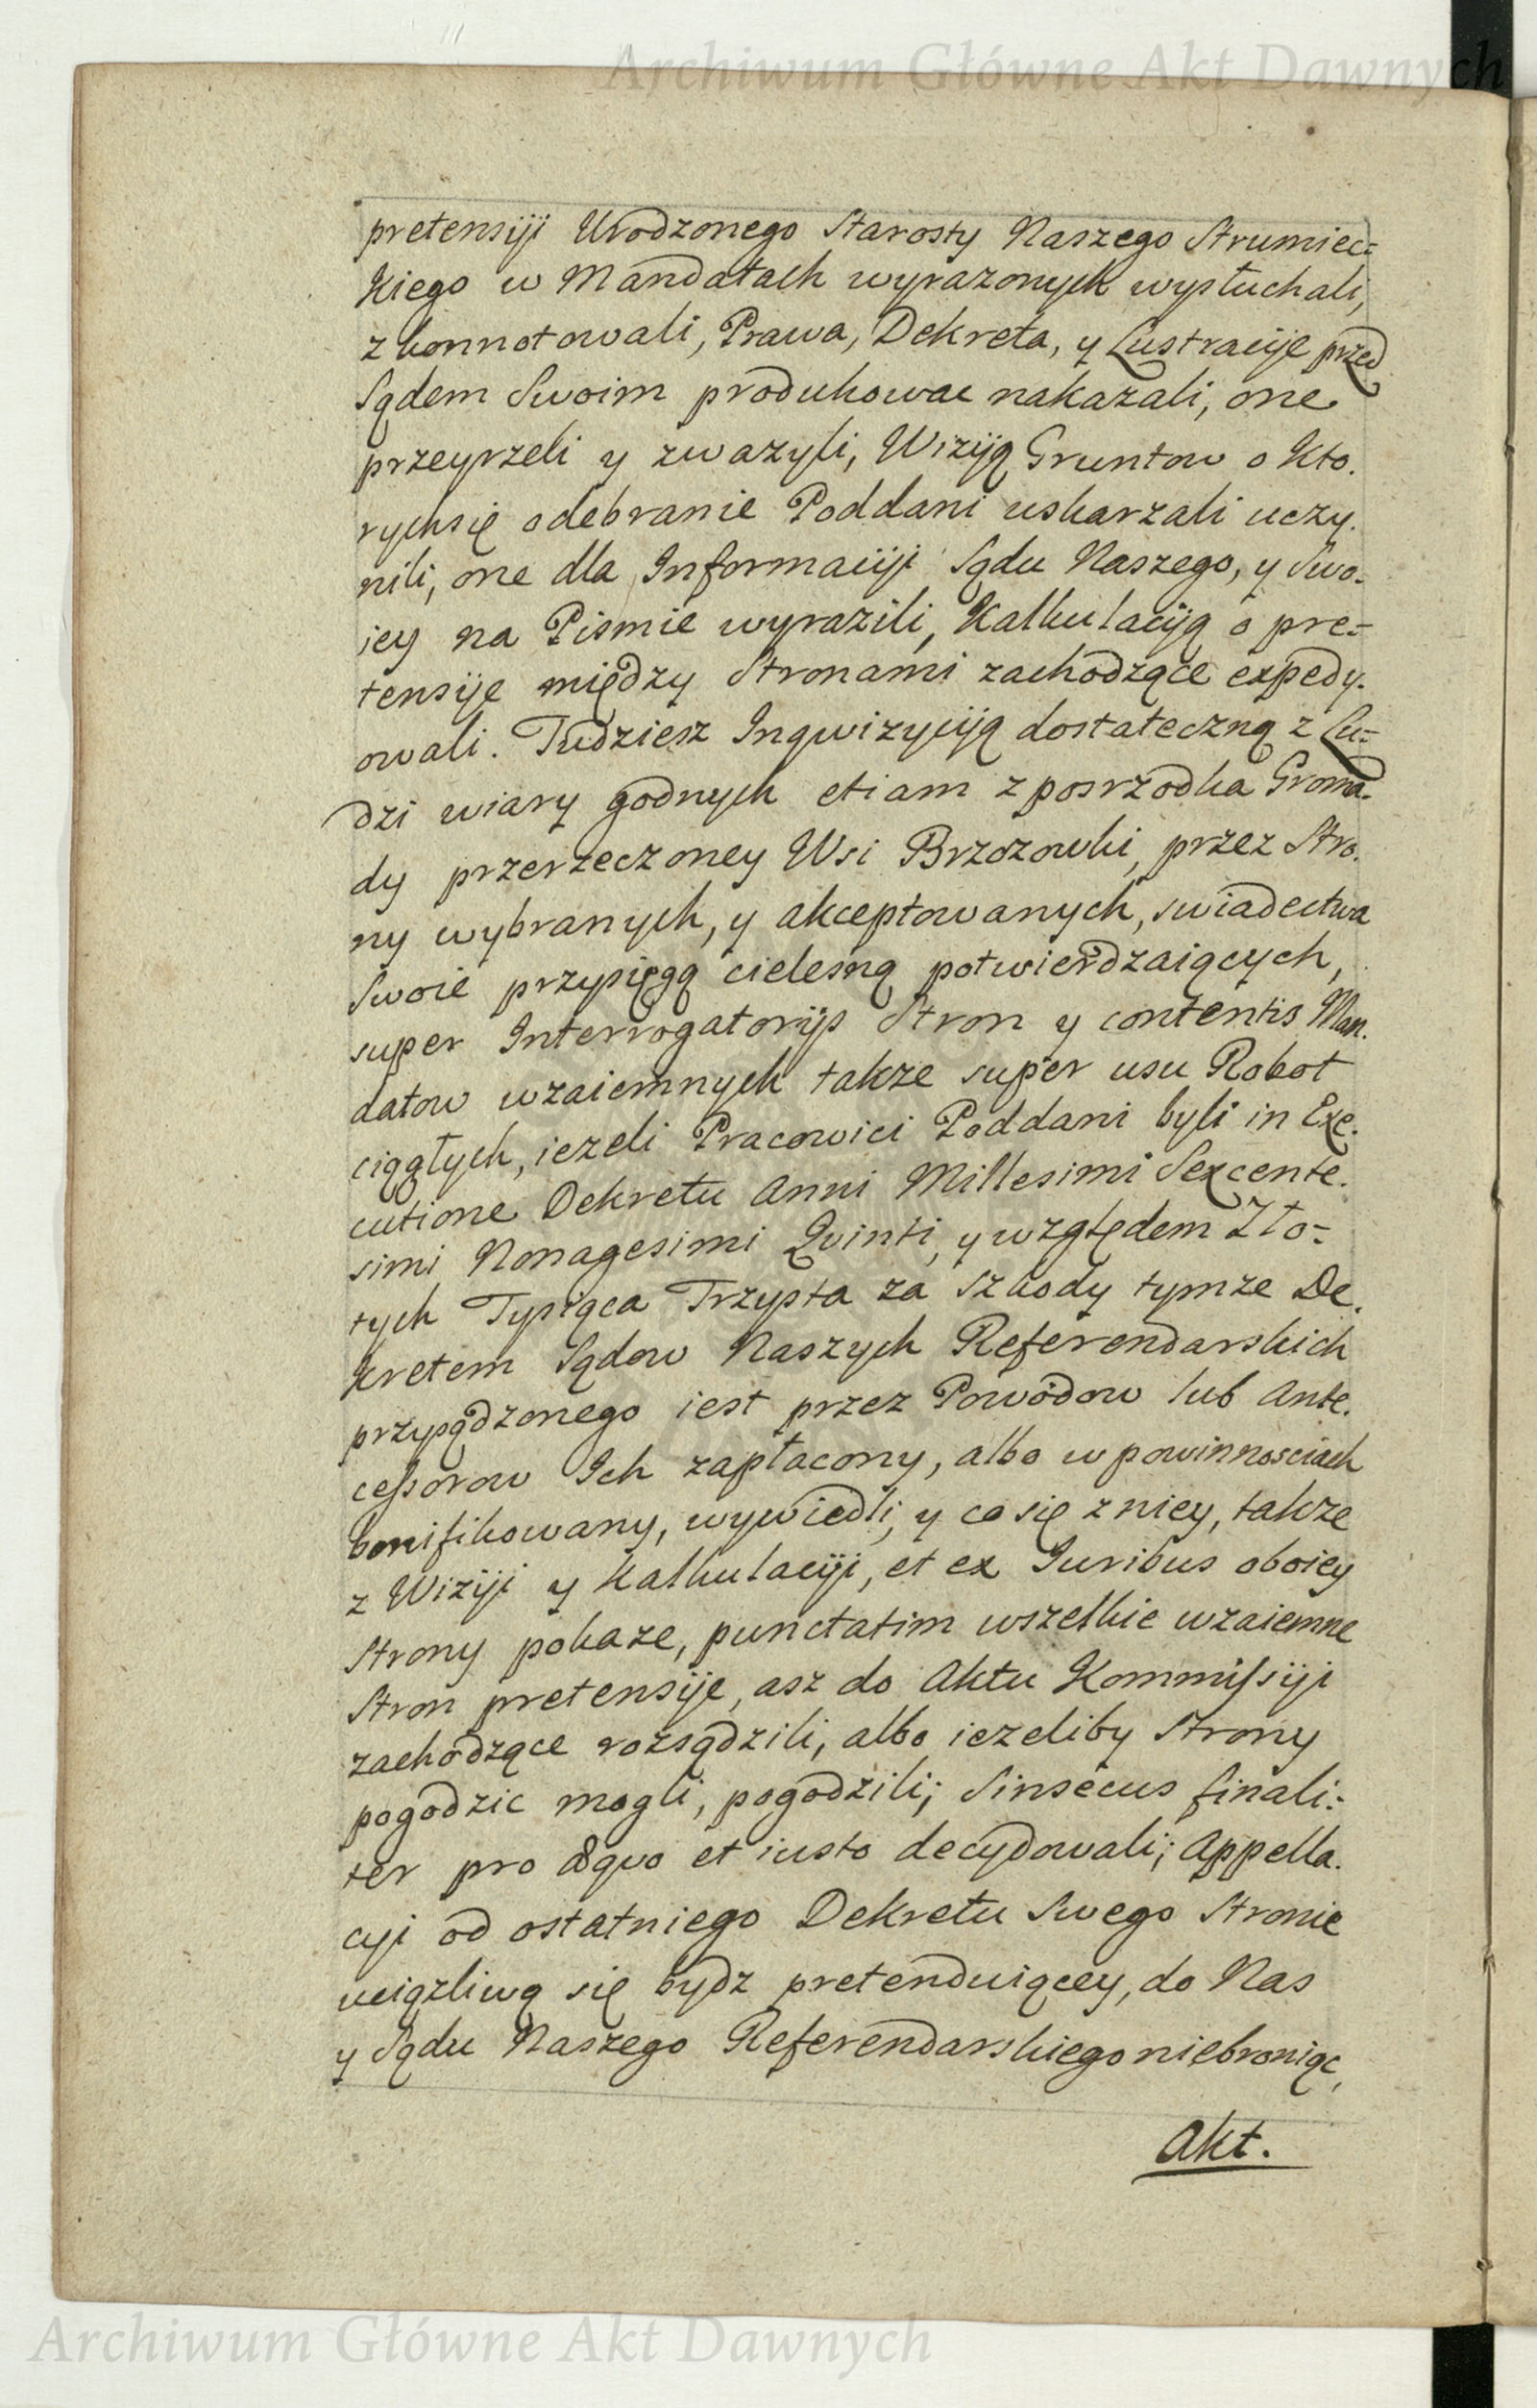 Archiwum Główne Akt Dawnych
pretensyji Urodzonego Starosty Naszego Strumiec=
kiego w Mandatach wyrazonych wysłuchali,
zkonnotowali, Prawa, Dekreta, y Lustracyje przed
Sądem Swoim produkowac nakazali, one
przeyrzeli y zwazyli, Wizyją Gruntow o kto.
rychsię odebranie Poddani uskarzali uczy.
nili, one dla Informacyji Sądu Naszego, y Swo.
iey na Pismie wyrazili, Kalkulacyją o pre=
tensyje między Stronami zachodzące expedy.
owali. Tudziesz Inqwizycyją dostateczną z Lu=
dzi wiary godnych etiam z posrzodka Groma.
dy przerzeczoney Wsi Brzozowki, przez Stro.
ny wybranych, y akceptowanych, swiadectwa
Swoie przysięgą cielesną potwierdzaiących,
super Interrogatoryjs Stron y contentis Man.
datow wzaiemnych takze super usu Robot
ciągłych, iezeli Pracowici Poddani byli in Exe.
cutione Dekretu Anni Millesimi Sexcente.
simi Nonagesimi Qvinti, y względem Zło=
tych Tysiąca Trzysta za Szkody tymze De.
kretem Sądow Naszych Referendarskich
przysądzonego iest przez Powodow lub Ante.
cessorow Ich zapłacony, albo w powinnosciach
bonifikowany, wywiedli, y co się z niey, takze
z Wizyji y Kalkulacyji, et ex Iuribus oboiey
Strony pokaze, punctatim wszelkie wzaiemne
Stron pretensyje, asz do Aktu Kommissyji
zachodzące rozsądzili, albo iezeliby Strony
pogodzic mogli, pogodzili; Sinsecus finali=
ter pro æquo et iusto decydowali; Appella.
cyi od ostatniego Dekretu Swego Stronie
uciązliwą się bydz pretenduiącey, do Nas
y Sądu Naszego Referendarskiego niebroniąc,
Akt.
Archiwum Główne Akt Dawnych